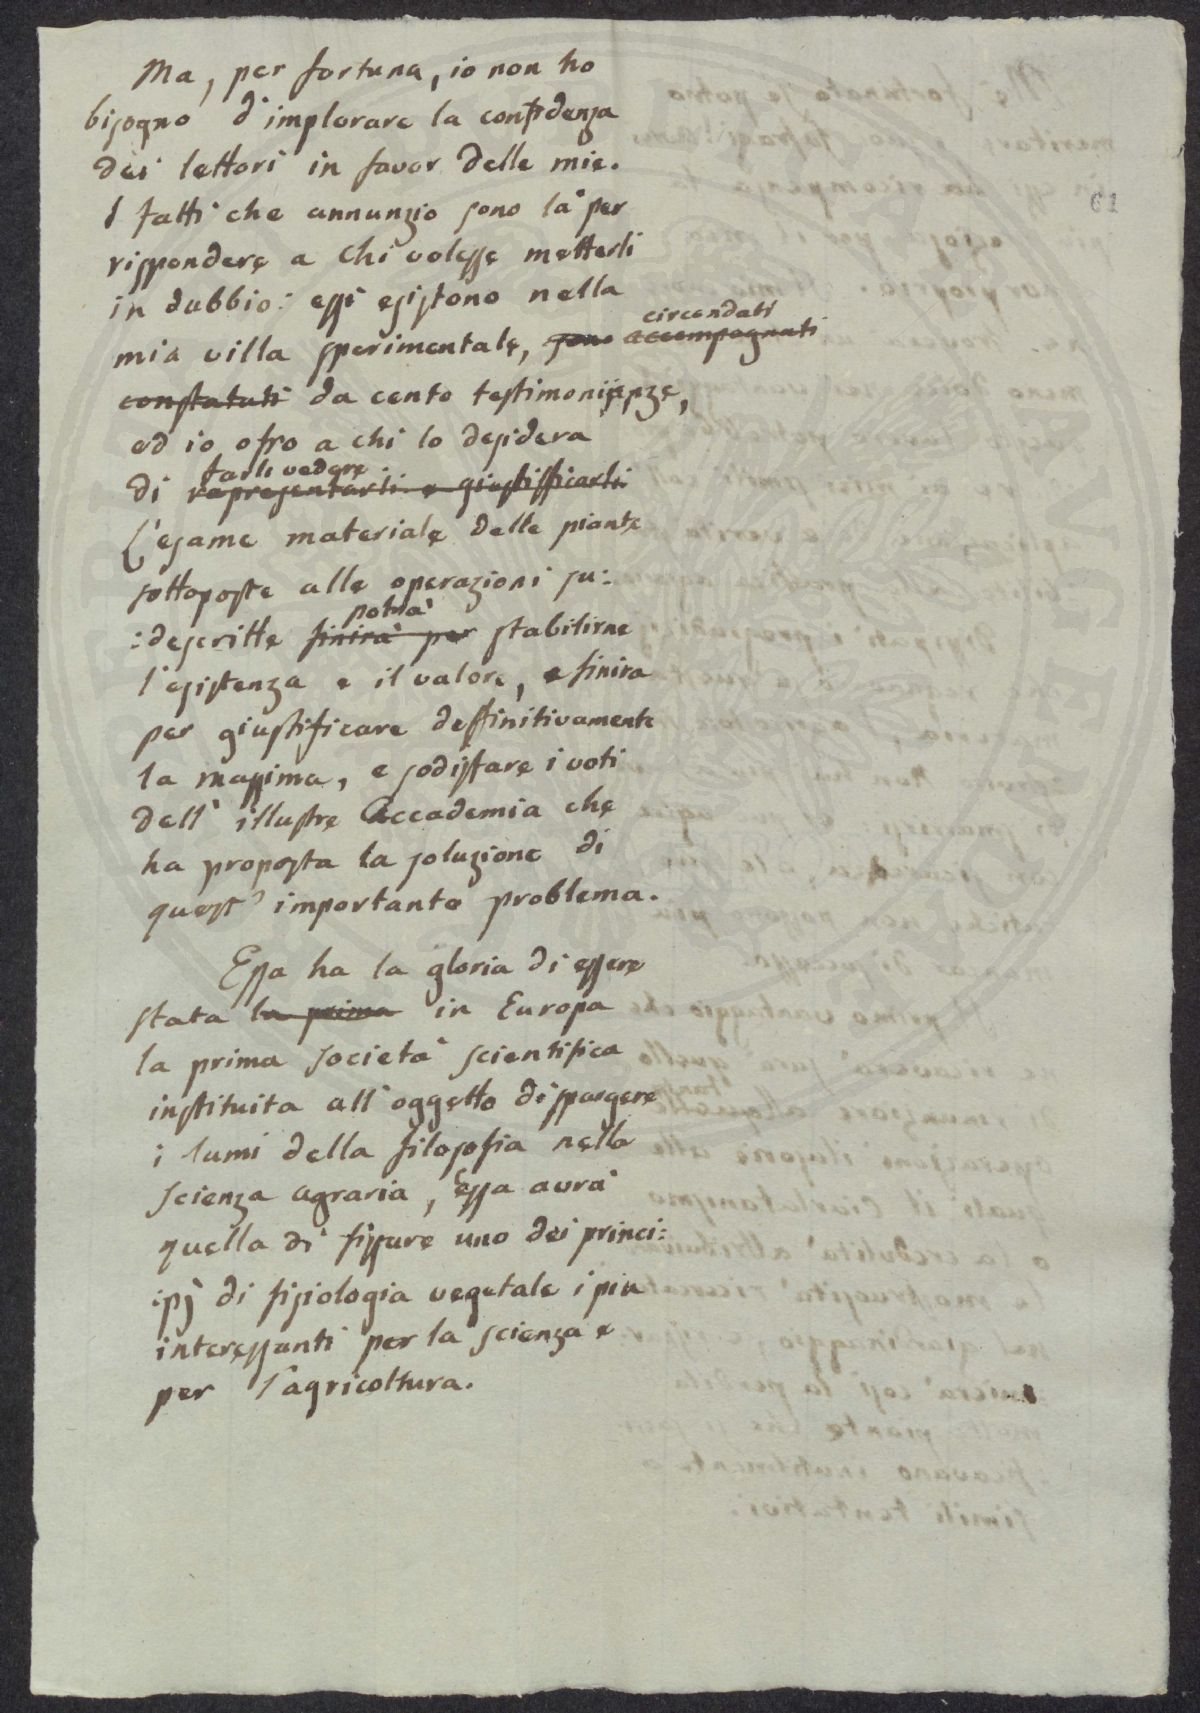 61
Ma, per fortuna, io non ho
bisogno d'implorare la confidenza
dei lettori in favor delle mie.
I fatti che annunzio sono là per
rispondere a chi volesse metterli
in dubbio: essi esistono nella
circondati
mia villa sperimentale, sono accompagnati
constatati da cento testimonianze,
ed io ofro a chi lo desidera
farli vedere
di rapresentarli e giustifficarli
L'esame materiale delle piante
sottoposte alle operazioni su:
potrà
:descritte finirà per stabilirne
l'esistenza e il valore, e finira
per giustificare deffinitivamente
la massima, e sodisfare i voti
dell' illustre Accademia che
ha proposta la soluzione di
quest' importante problema.
Essa ha la gloria di essere
stata la prima in Europa
la prima società scientifica
instituita all'oggetto di spargere
i lumi della filosofia nella
scienza agraria, Essa avrà
quella di fissare uno dei princi:
:pj di fisiologia vegetale i piu
interessanti per la scienza e
per l'agricoltura.